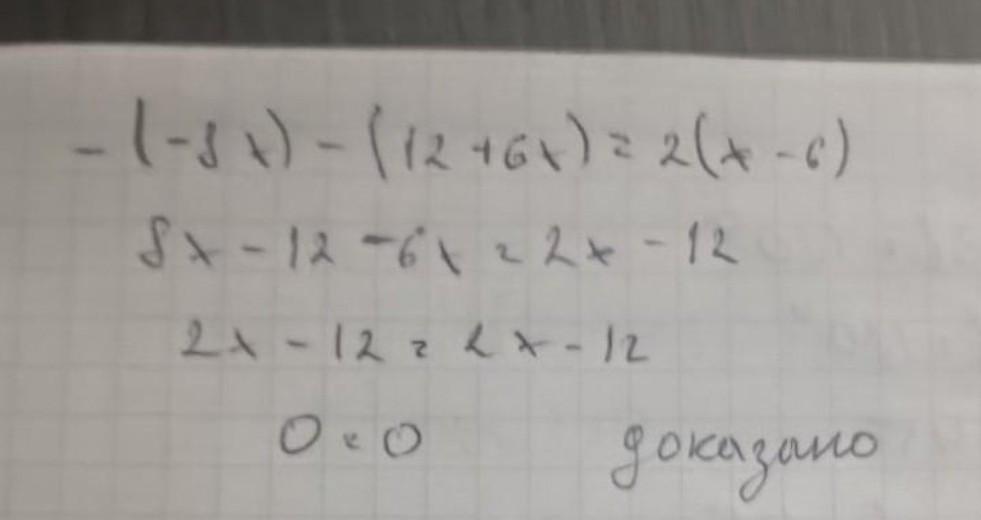 -(-8x)-(12+6x)=2(x-6)
8x-12-6x=2x-12
2x-12=2x-12
0=0 доказано